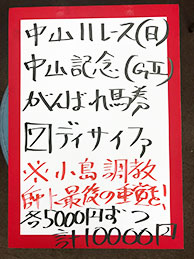 中山11レース(日)
中山記念(GⅡ)
がんばれ馬券
7 ディサイファ
※小島調教
師、最後の重賞を!
各5000円ずつ
計10000円